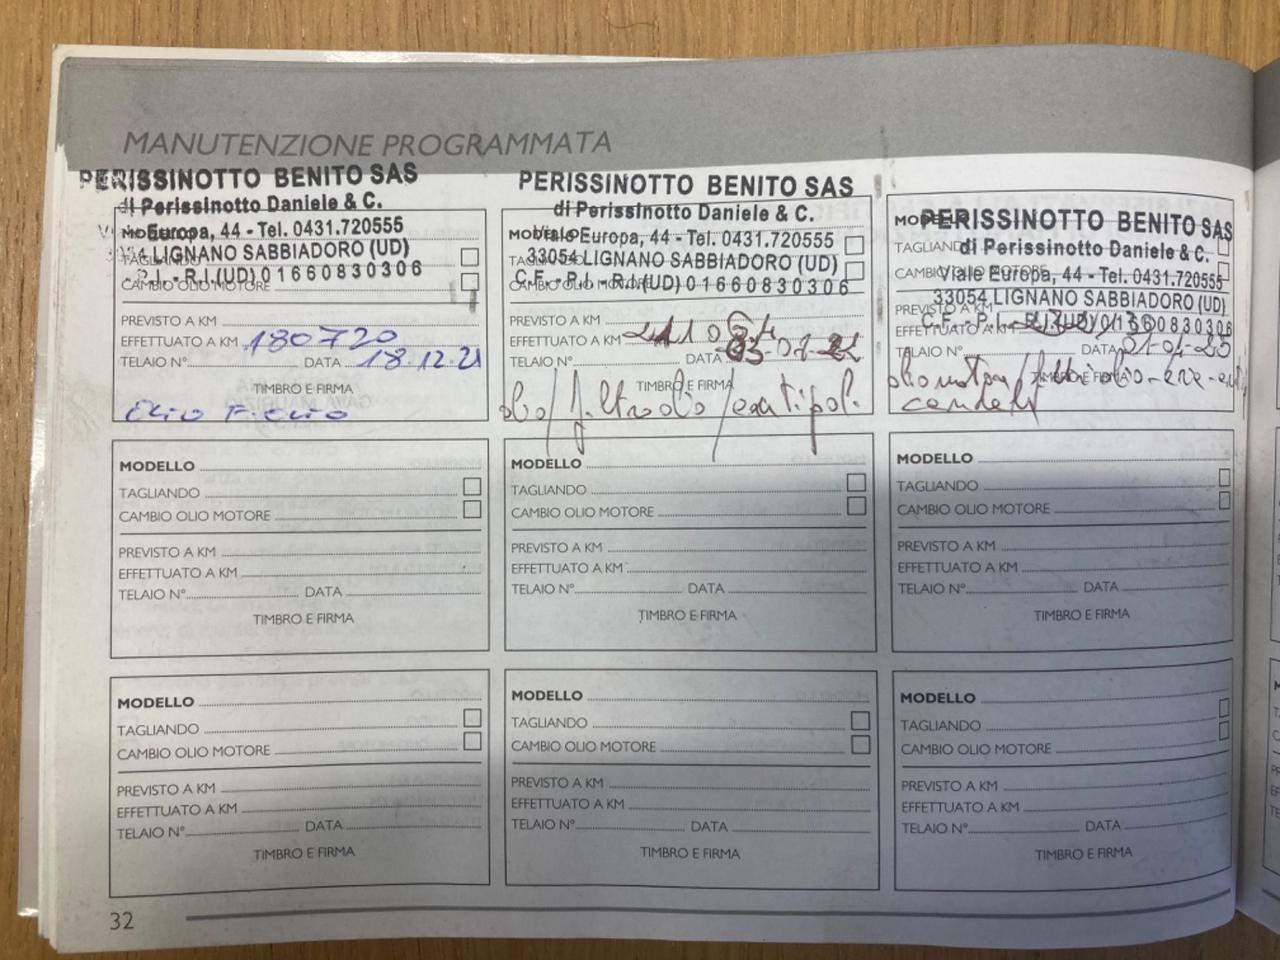 MANUTENZIONE PROGRAMMATA
PERISSINOTTO BENITO SAS
di Perissinotto Daniele & C.
Europa, 44 - Tel. 0431.720555
LIGNANO SABBIADORO (UD)
P.I. - R.I.(UD) 01660830306
CAMBIO OLIO MOTORE
PREVISTO A KM
EFFETTUATO A KM 180720
TELAIO N° DATA 18.12.21
TIMBRO E FIRMA
PERISSINOTTO BENITO SAS
di Perissinotto Daniele & C.
Viale Europa, 44 - Tel. 0431.720555
33054 LIGNANO SABBIADORO (UD)
C.F. - P.I. - R.I.(UD) 01660830306
PREVISTO A KM
EFFETTUATO A KM
TELAIO N° DATA
TIMBRO E FIRMA
olio / filtro olio /
PERISSINOTTO BENITO SAS
di Perissinotto Daniele & C.
Viale Europa, 44 - Tel. 0431.720555
33054 LIGNANO SABBIADORO (UD)
EFFETTUATO A KM
TELAIO N° DATA
MODELLO
TAGLIANDO
CAMBIO OLIO MOTORE
PREVISTO A KM
EFFETTUATO A KM
TELAIO N° DATA
TIMBRO E FIRMA
MODELLO
TAGLIANDO
CAMBIO OLIO MOTORE
PREVISTO A KM
EFFETTUATO A KM
TELAIO N° DATA
TIMBRO E FIRMA
MODELLO
TAGLIANDO
CAMBIO OLIO MOTORE
PREVISTO A KM
EFFETTUATO A KM
TELAIO N° DATA
TIMBRO E FIRMA
MODELLO
TAGLIANDO
CAMBIO OLIO MOTORE
PREVISTO A KM
EFFETTUATO A KM
TELAIO N° DATA
TIMBRO E FIRMA
MODELLO
TAGLIANDO
CAMBIO OLIO MOTORE
PREVISTO A KM
EFFETTUATO A KM
TELAIO N° DATA
TIMBRO E FIRMA
MODELLO
TAGLIANDO
CAMBIO OLIO MOTORE
PREVISTO A KM
EFFETTUATO A KM
TELAIO N° DATA
TIMBRO E FIRMA
32